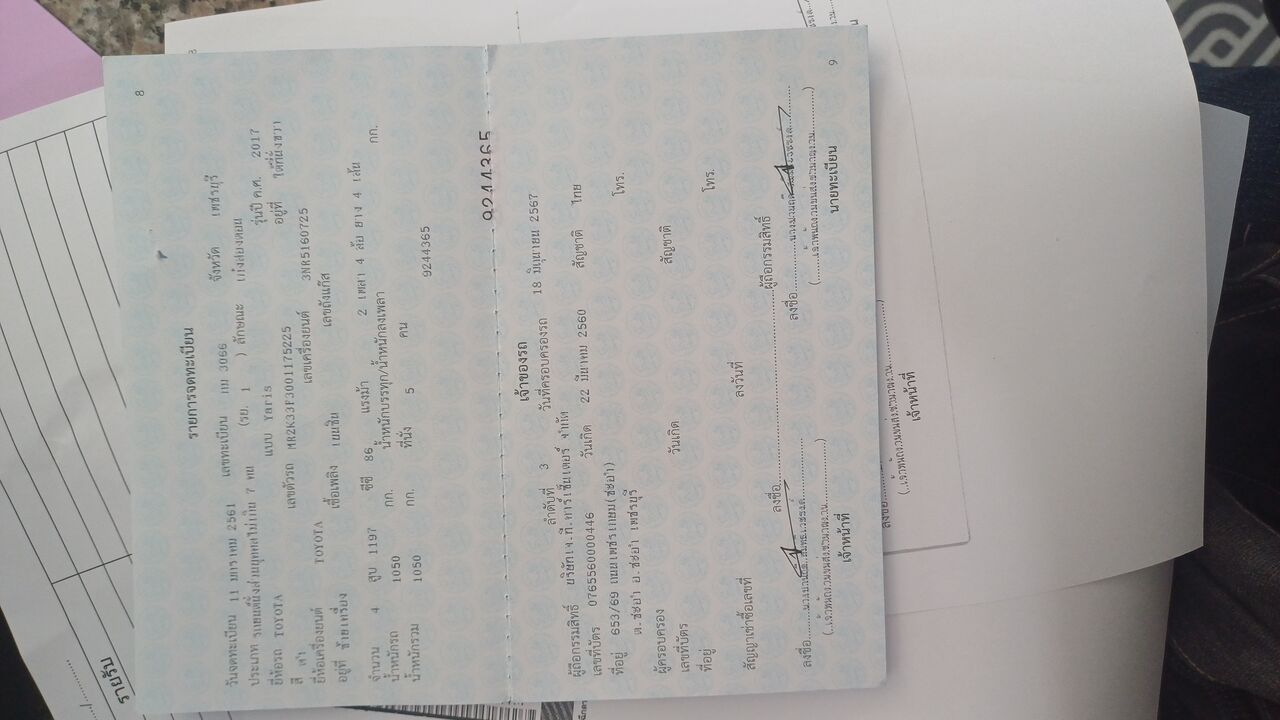 8
รายการจดทะเบียน
วันจดทะเบียน 11 มกราคม 2561 เลขทะเบียน กม 3066 จังหวัด เพชรบุรี
ประเภท รถยนต์นั่งส่วนบุคคลไม่เกิน 7 คน (รย. 1 ) ลักษณะ เก๋งสองตอน
ยี่ห้อรถ TOYOTA แบบ Yaris รุ่นปี ค.ศ. 2017
สี ดำ เลขตัวรถ MR2K33F3001175225 อยู่ที่ ใต้ที่นั่งขวา
ยี่ห้อเครื่องยนต์ TOYOTA เลขเครื่องยนต์ 3NR5160725
อยู่ที่ ซ้ายเครื่อง เชื้อเพลิง เบนซิน เลขถังแก๊ส
จำนวน 4 สูบ 1197 ซีซี 86 แรงม้า 2 เพลา 4 ล้อ ยาง 4 เส้น
น้ำหนักรถ 1050 กก. น้ำหนักบรรทุก/น้ำหนักลงเพลา กก.
น้ำหนักรวม 1050 กก. ที่นั่ง 5 คน
9244365
9244365
เจ้าของรถ
ลำดับที่ 3 วันที่ครอบครองรถ 18 มิถุนายน 2567
ผู้ถือกรรมสิทธิ์ บริษัทเจ.ที.คาร์เซ็นเตอร์ จำกัด
เลขที่บัตร 0765560000446 วันเกิด 22 มีนาคม 2560 สัญชาติ ไทย
ที่อยู่ 653/69 ถนนเพชรเกษม(ชะอำ) โทร.
ต.ชะอำ อ.ชะอำ เพชรบุรี
ผู้ครอบครอง
เลขที่บัตร วันเกิด สัญชาติ
ที่อยู่ โทร.
สัญญาเช่าซื้อเลขที่ ลงวันที่
ลงชื่อ ผู้ถือกรรมสิทธิ์
ลงชื่อ ลงชื่อ
(..เจ้าพนักงานขนส่งชำนาญงาน..) (..เจ้าพนักงานขนส่งชำนาญงาน..)
เจ้าหน้าที่ นายทะเบียน
9
ลงชื่อ
(..เจ้าพนักงานขนส่งชำนาญงาน..)
เจ้าหน้าที่
รายรับ